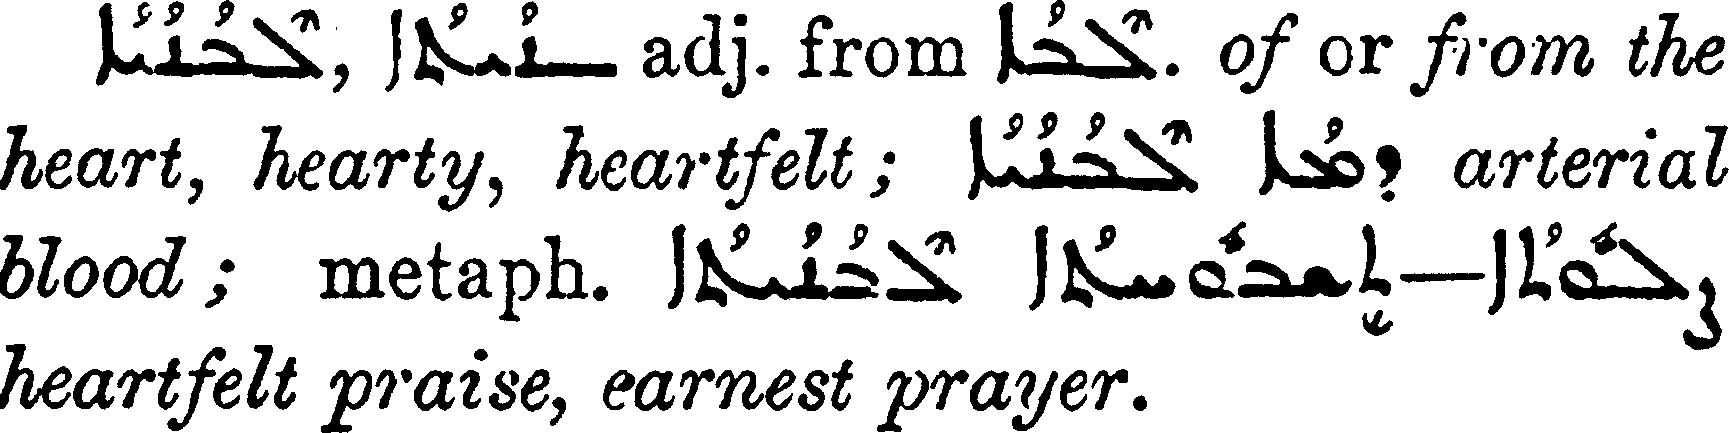 ܠܶܒܳܢܳܝܳܐ, ـܢܳܝܬܳܐ adj. from ܠܶܒܳܐ. of or from the
heart, hearty, heartfelt; ܕܡܳܐ ܠܶܒܳܢܳܝܳܐ arterial
blood; metaph. ܨܠܽܘܬܳܐ—ܬܶܫܒܽܘܚܬܳܐ ܠܶܒܳܢܳܝܬܳܐ
heartfelt praise, earnest prayer.